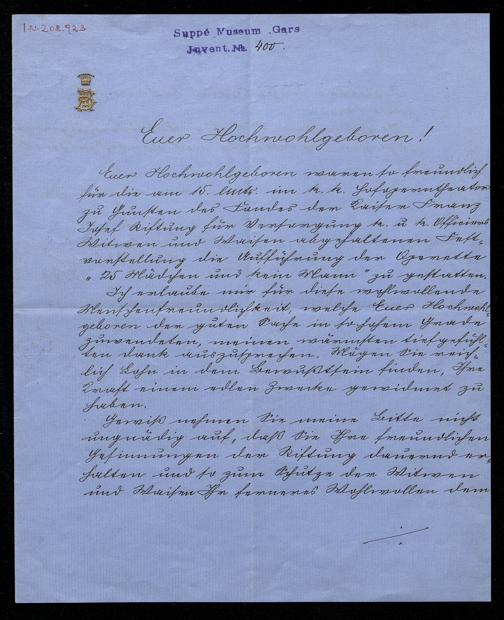 I.N. 208.923
Suppé Museum Gars
Invent. No. 400.
Euer Hochwohlgeboren!
Euer Hochwohlgeboren waren so freundlich
für die am 15. im k. k. Hofoperntheater
zu Gunsten des Fondes der Kaiser Franz
Josef Stiftung für Versorgung k. u. k. Officiers
Witwen und Waisen abgehaltenen Fest-
vorstellung die Aufführung der Operette
"25 Mädchen und kein Mann" zu gestatten.
Ich erlaube mir für diese wohlwollende
Menschenfreundlichkeit, welche Euer Hochwohl-
geboren der guten Sache in so hohem Grade
zuwendeten, meinen wärmsten tiefgefühl-
ten Dank auszusprechen. Mögen Sie reich-
lich Lohn in dem Bewußtsein finden, Ihre
Kraft einem edlen Zwecke gewidmet zu
haben.
Gewiß nehmen Sie meine Bitte nicht
ungnädig auf, daß Sie Ihre freundlichen
Gesinnungen der Stiftung dauernd er-
halten und so zum Schutze der Witwen
und Waisen Ihr ferneres Wohlwollen dem
./.